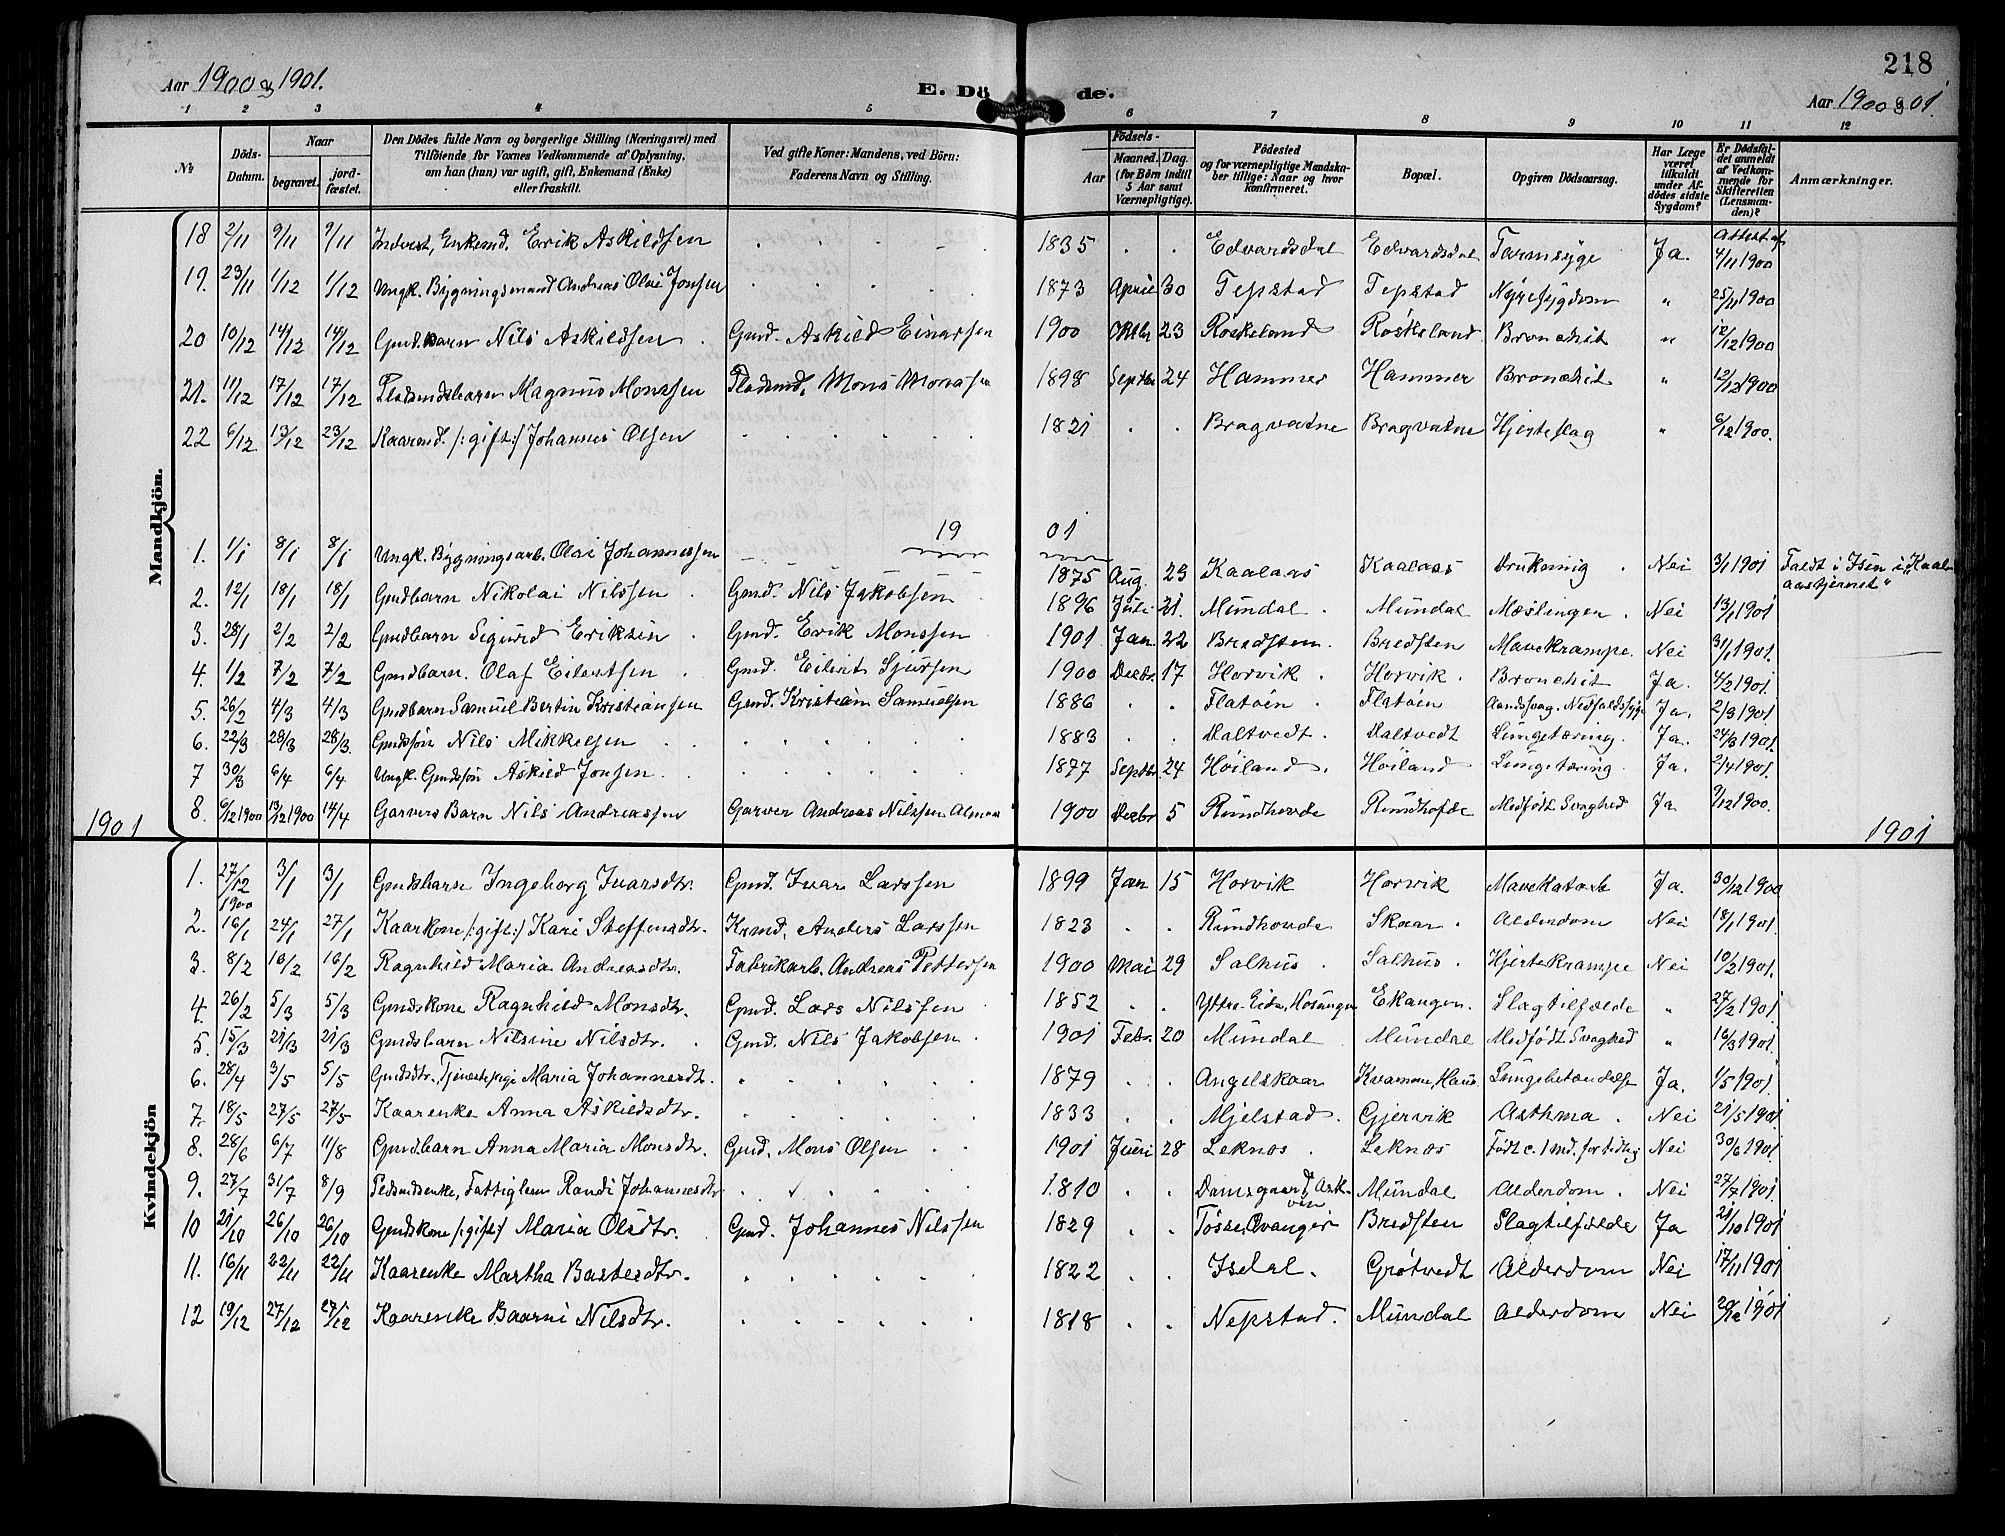 218
Aar 1900 og 1901.
E. Dö de.
Aar 1900 og 01
1 2 3 4 5 6 7 8 9 10 11 12
No
Döds-Datum.
Naar begravet. jordfæstet.
Den Dödes fulde Navn og borgerlige Stilling (Næringsvei) med Tilföiende for Voxnes Vedkommende af Oplysning, om han (hun) var ugift, gift, Enkemand (Enke) eller fraskilt.
Ved gifte Koner: Mandens, ved Börn: Faderens Navn og Stilling.
Födsels- Aar Maaned. Dag. (for Börn indtil 5 Aar samt Værnepligtige).
Födested og for værnepligtige Mandskaber tillige: Naar og hvor Konfirmeret.
Bopæl.
Opgiven Dödsaarsag.
Har Læge været tilkaldt under Afdödes sidste Sygdom?
Er Dödsfaldet anmeldt af Vedkommende for Skifteretten (Lensmanden)?
Anmærkninger.
Mandkjön.
18 2/11 9/11 9/11 Inderst, Enkemd. Erik Askildsen 1835 Edvardsdal Edvardsdal Tarmsyge Ja. Attest af 4/11 1900
19. 23/11 1/12 1/12 Ungk. Bygningsmand Andreas Olai Jonsen 1873 April 30 Tepstad Tepstad Nyresygdom " 25/11 1900
20 10/12 14/12 14/12 Gmdbarn Nils Askildsen Gmd. Askild Einarsen 1900 Oktbr 23 Röskeland Röskeland Bronchit " 12/12 1900
21. 11/12 17/12 17/12 Pladsmdsbarn Magnus Monssen Pladsmd. Mons Monssen 1898 Septbr 24 Hammer Hammer Bronchit " 12/12 1900
22 6/12 13/12 23/12 Kaarmd. /:gift:/ Johannes Olsen 1821 Bragvatne Bragvatne Hjerteslag " 6/12 1900.
19 01
1. 1/1 8/1 8/1 Ungk. Bygningsarb. Olai Johannessen 1875 Aug. 23 Kaalaas Kaalaas Drukning Nei 3/1 1901 Faldt i Isen i "Kaalaastjernet"
2. 12/1 18/1 18/1 Gmdbarn Nikolai Nilssen Gmd. Nils Jakobsen 1896 Juli 21. Mundal Mundal Mæslingen. Nei 13/1 1901
3. 28/1 2/2 2/2 Gmdbarn Sigurd Eriksen Gmd. Erik Monssen 1901 Jan 22 Bredsten. Bredsten Mavekrampe. Nei 31/1 1901.
4. 1/2 7/2 7/2 Gmdbarn. Olaf Eilertsen Gmd. Eilert Sjursen 1900 Decbr. 17 Horvik Horvik. Bronchit Ja. 4/2 1901.
5. 26/2 4/3 4/3 Gmdbarn Samuel Bertin Kristiansen Gmd. Kristian Samuelsen 1886 Flatöen Flatöen Aandssvag. Nedfaldssyge Ja. 2/3 1901
6. 22/3 28/3 28/3. Gmdssön Nils Mikkelsen 1883 Daltvedt. Daltvedt Lungetæring. Ja. 24/3 1901.
7 30/3 6/4 6/4 Ungk. Gmdssön Askild Jonsen 1877 Septbr. 24 Höiland. Höiland Lungetæring. Ja. 2/4 1901.
8. 6/12 1900 13/12 1900 14/4 Garvers Barn Nils Andreassen Garver Andreas Nilssen 1900 Decbr 5 Rundhovde Rundhofde Medfödt Svaghed Ja. 9/12 1900.
1901 1901
Kvindekjön
1. 27/12 1900 3/1 3/1 Gmdsbarn Ingeborg Ivarsdtr. Gmd. Ivar Larssen 1899 Jan 15 Horvik Horvik Mavekatarh Ja. 30/12 1900
2. 16/1 24/1 27/1 Kaarkone /:gift:/ Kari Steffensdtr. Krmd. Anders Larssen 1823 Rundhovde Skaar. Alderdom Nei 18/1 1901.
3. 8/2 16/2 16/2 Ragnhild Maria Andreasdtr. Fabrikarb. Andreas Pettersen 1900 Mai 29 Salhus. Salhus. Hjertekrampe Nei 10/2 1901.
4. 26/2 5/3 5/3 Gmdskone Ragnhild Monsdtr. Gmd. Lars Nilssen 1852 Yttre-Eide, Hosanger Ekangen. Slagtilfælde " 27/2 1901
5. 15/3 21/3 21/3 Gmdsbarn Nilsine Nilsdtr. Gmd. Nils Jakobsen 1901 Febr. 20 Mundal Mundal Medfödt Svaghed " 16/3 1901.
6. 28/4 3/5 5/5 Gmdsdtr., Tjenestepige Maria Johannesdtr. 1879 Angelskaar Kvamme, Haus Lungebetændelse Ja. 1/5 1901.
7. 18/5 27/5 27/5 Kaarenke Anna Askildsdtr. 1833 Mjelstad. Gjervik Asthma. Nei 21/5 1901
8. 28/6 6/7 11/8 Gmdbarn Anna Maria Monsdtr. Gmd. Mons Olsen 1901 Juni 28 Leknes. Leknes Födt c. 1 md. for tidlig Nei 30/6 1901.
9. 27/7 31/7 8/9 Pldsmdsenke, Fattiglem Randi Johannesdtr 1810 Damsgaard, Askvin Mundal Alderdom. Nei 27/7 1901.
10 21/10 26/10 26/10 Gmdskone /:gift:/ Maria Olsdtr. Gmd. Johannes Nilssen 1829 Tösse, Ovanger Bredsten Slagtilfælde Ja 21/10 1901
11. 16/11 22/11 22/11 Kaarenke Martha Bastesdtr. 1822 Isdal. Grötvedt Alderdom Nei 17/11 1901
12 19/12 27/12 27/12 Kaarenke Baarni Nilsdtr. 1818 Nepstad. Mundal Alderdom Nei 20/12 1901